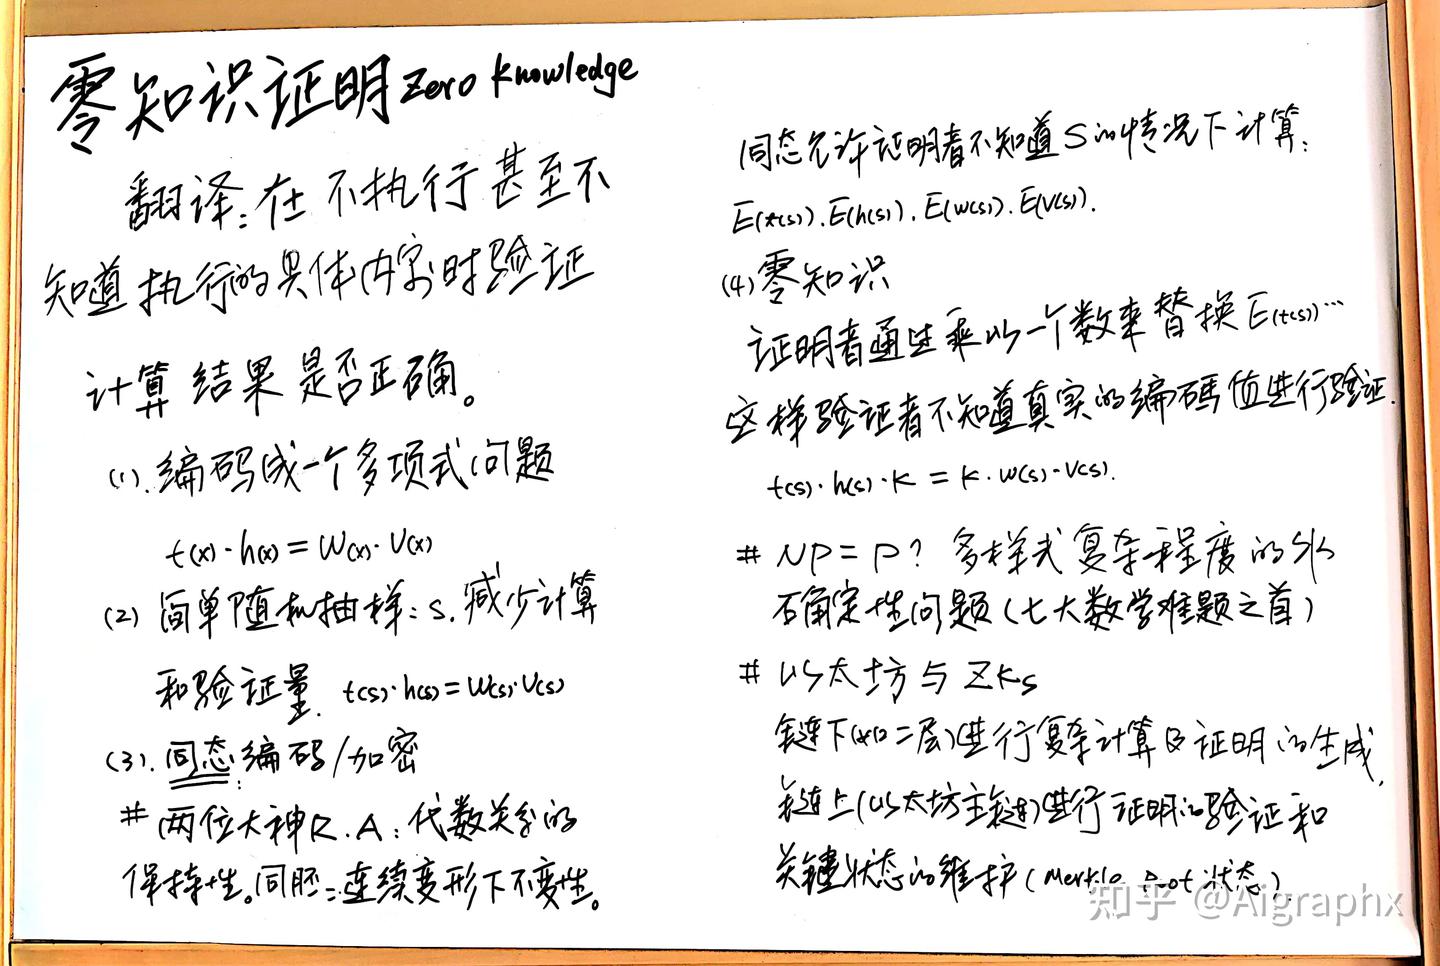 零知识证明 Zero Knowledge
翻译:在不执行甚至不
知道执行的具体内容时验证
计算结果是否正确。
(1).编码成一个多项式问题
t(x)·h(x)=w(x)·v(x)
(2)简单随机抽样:s.减少计算
和验证量. t(s)·h(s)=w(s)·v(s)
(3).同态编码/加密:
# 两位大神R.A:代数关系的
保持性。同胚:连续变形下不变性。
同态允许证明者不知道S的情况下计算:
E(t(s)).E(h(s)).E(w(s)).E(v(s)).
(4)零知识
证明者通过乘以一个数来替换E(t(s))…
这样验证者不知道真实的编码值进行验证.
t(s)·h(s)·k=k·w(s)·v(s).
# NP=P? 多样式复杂程度的
确定性问题(七大数学难题之首)
# 以太坊与ZKs
链下(如二层)进行复杂计算及证明的生成,
链上(以太坊主链)进行证明的验证和
关键状态的维护(Merkle Root状态)
知乎 @Aigraphx